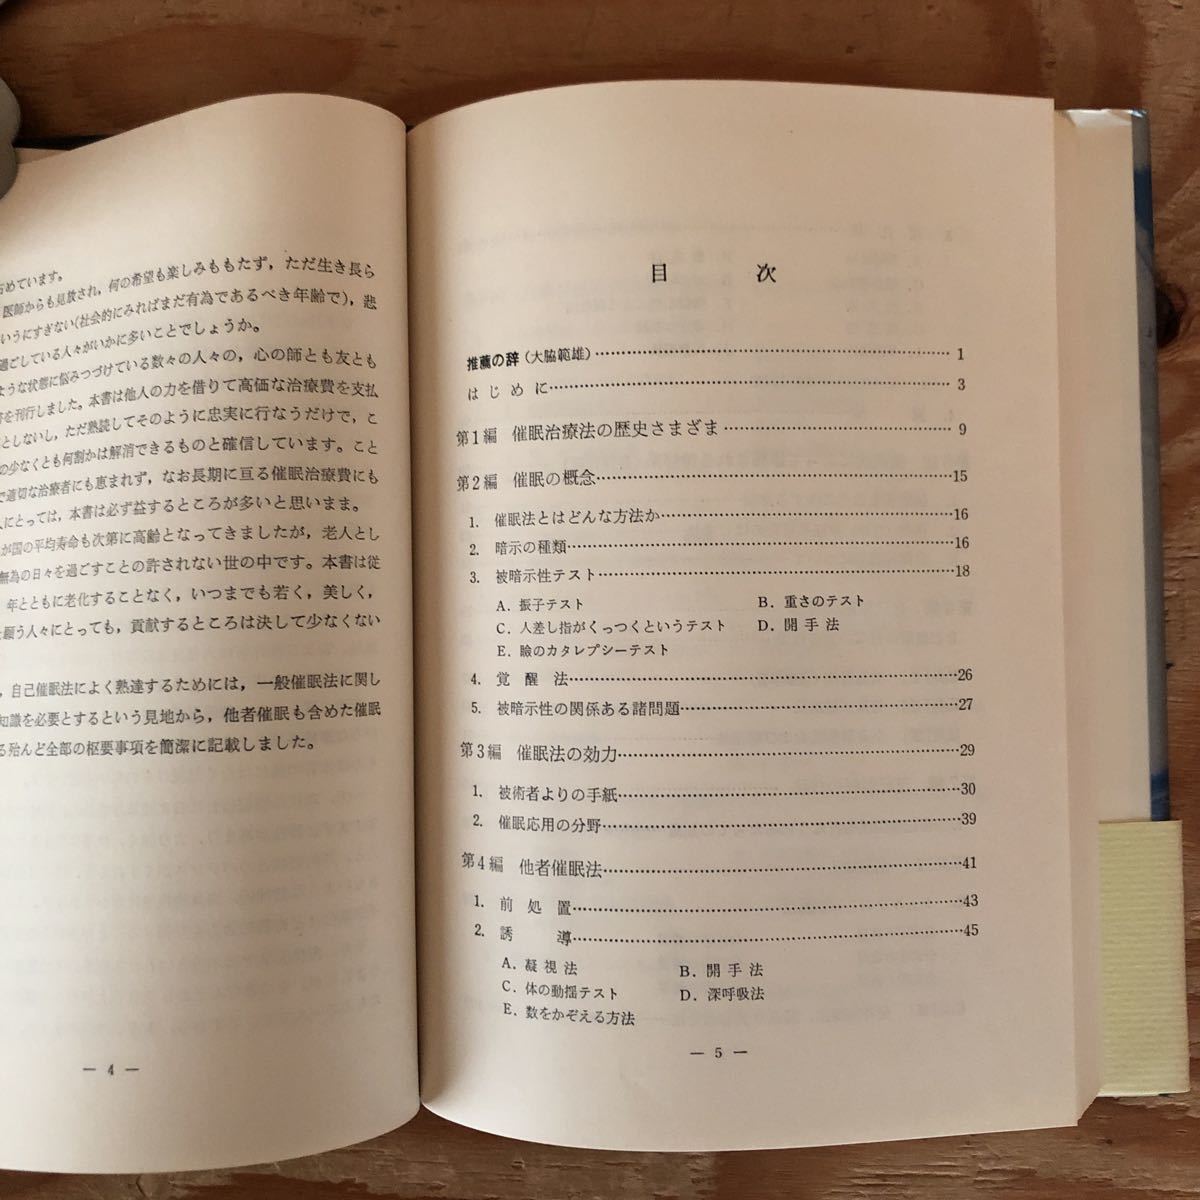 めています。
医師からも見放され，何の希望も楽しみももたず，ただ生き長ら
いうにすぎない(社会的にみればまだ有為であるべき年齢で)，悲
過ごしている人々がいかに多いことでしょうか。
ような状態に悩みつづけている数々の人々の，心の師とも友とも
を刊行しました。本書は他人の力を借りて高価な治療費を支払
としないし，ただ熟読してそのように忠実に行なうだけで，こ
の少なくとも何割かは解消できるものと確信しています。こと
で適切な治療者にも恵まれず，なお長期に亘る催眠治療費にも
人にとっては，本書は必ず益するところが多いと思います。
が国の平均寿命も次第に高齢となってきましたが，老人とし
無為の日々を過ごすことの許されない世の中です。本書は従
年とともに老化することなく，いつまでも若く，美しく，
願う人々にとっても，貢献するところは決して少なくない
，自己催眠法によく熟達するためには，一般催眠法に関し
知識を必要とするという見地から，他者催眠も含めた催眠
る殆んど全部の枢要事項を簡潔に記載しました。
— 4 —
目 次
推薦の辞（大脇範雄）……1
はじめに……3
第1編 催眠治療法の歴史さまざま……9
第2編 催眠の概念……15
1. 催眠法とはどんな方法か……16
2. 暗示の種類……16
3. 被暗示性テスト……18
A．振子テスト B．重さのテスト
C．人差し指がくっつくというテスト D．開手法
E．瞼のカタレプシーテスト
4. 覚醒法……26
5. 被暗示性の関係ある諸問題……27
第3編 催眠法の効力……29
1. 被術者よりの手紙……30
2. 催眠応用の分野……39
第4編 他者催眠法……41
1. 前処置……43
2. 誘導……45
A．凝視法 B．開手法
C．体の動揺テスト D．深呼吸法
E．数をかぞえる方法
— 5 —